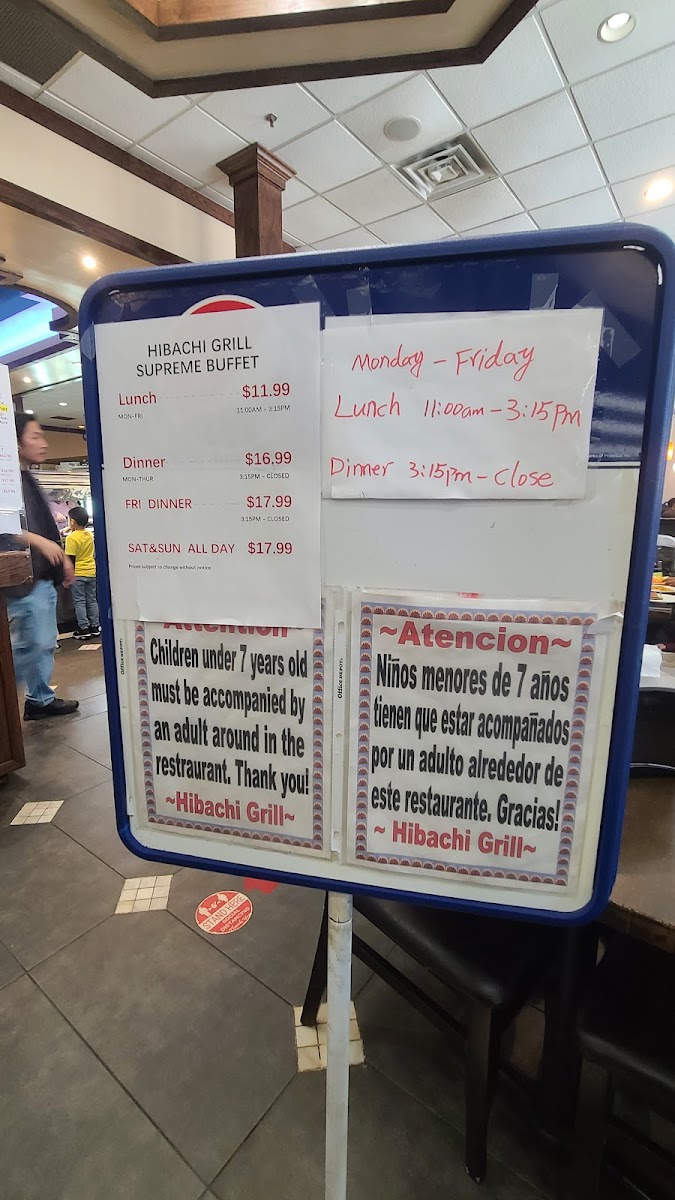 HIBACHI GRILL
SUPREME BUFFET
Lunch $11.99
MON-FRI 11:00AM - 3:15PM
Dinner $16.99
MON-THUR 3:15PM - CLOSED
FRI DINNER $17.99
3:15PM - CLOSED
SAT&SUN ALL DAY $17.99
Prices subject to change without notice
Monday - Friday
Lunch 11:00am - 3:15pm
Dinner 3:15pm - Close
Attention
Children under 7 years old
must be accompanied by
an adult around in the
restraurant. Thank you!
~Hibachi Grill~
Office DEPOT
~Atencion~
Niños menores de 7 años
tienen que estar acompañados
por un adulto alrededor de
este restaurante. Gracias!
~ Hibachi Grill~
Office DEPOT
STAND HERE